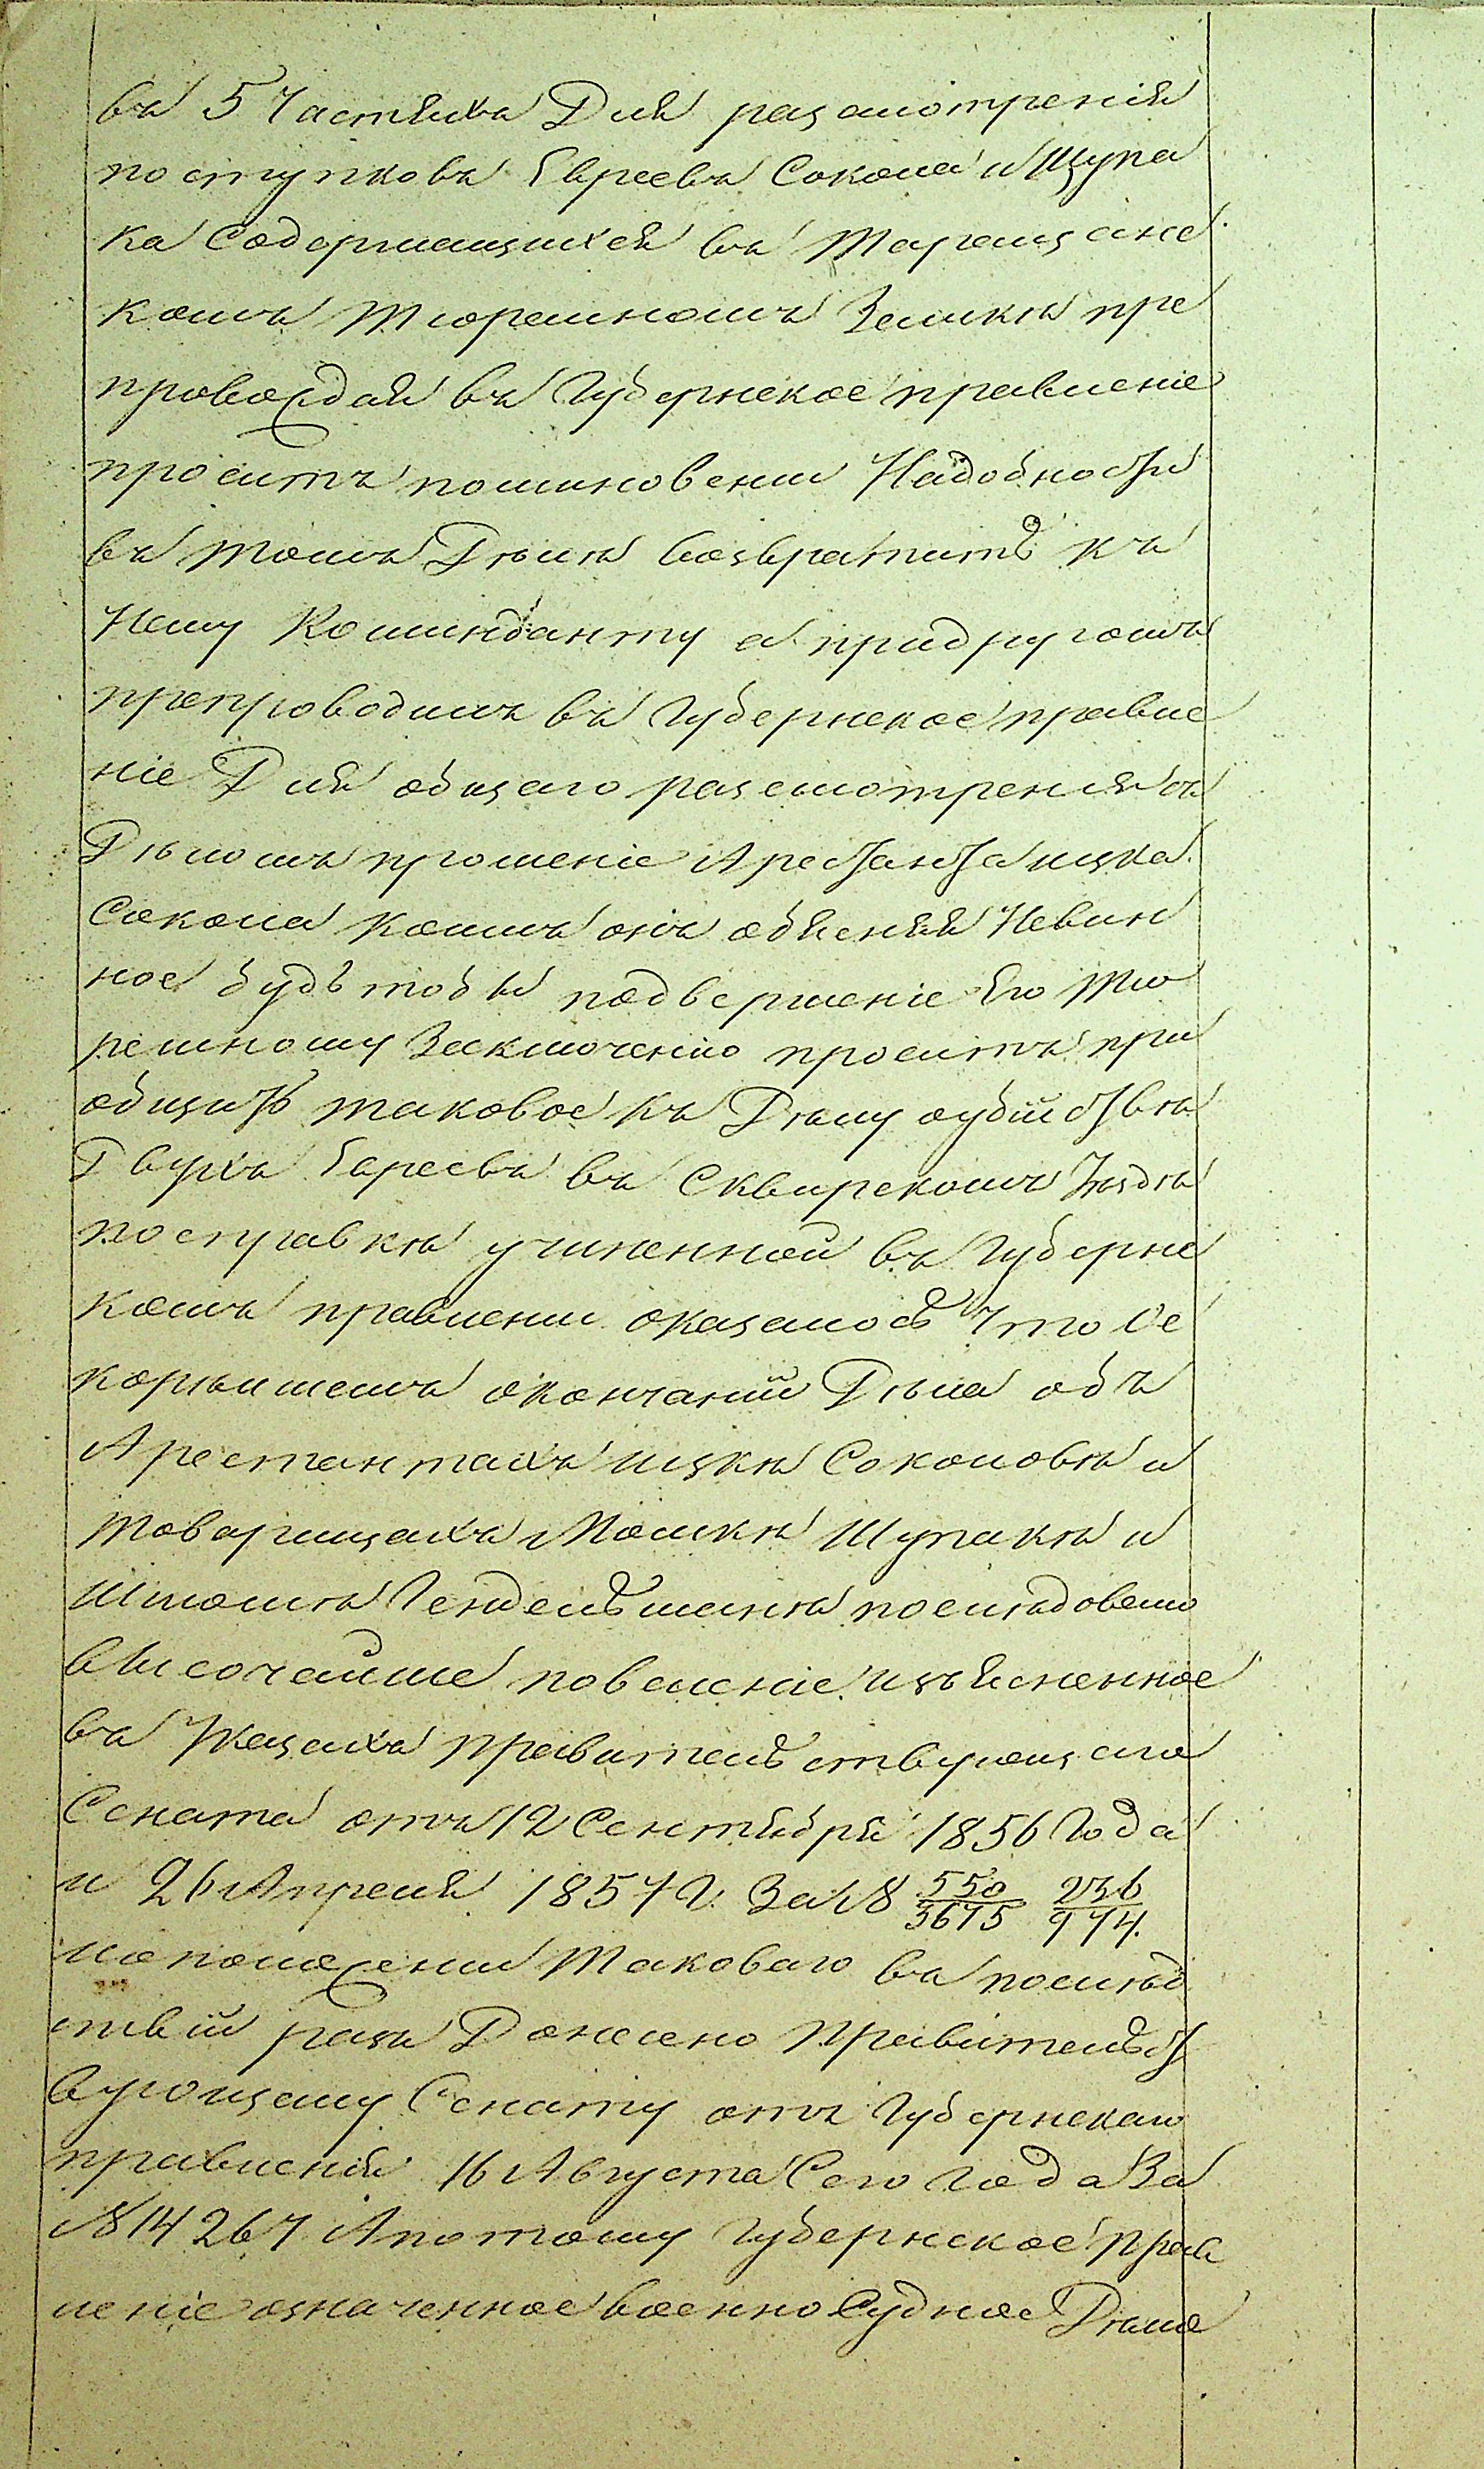 въ 5 Частяхъ Для разсмотренія
поступковъ Евреевъ Сокола и Щупа
ка Содержащихся въ Таращанс
комъ Тюремномъ Замкѣ пре
провождая въ Губернское правленіе
проситъ поминовеніи Надобности
въ томъ Дѣлѣ возвратить къ
Нему Комминданту а придругомъ
препроводилъ въ Губернское правле
ніе Для общаго разсмотренія съ
Дѣломъ прошеніе Арестанта ицка
Сокола коимъ онъ объясняя Невин
ное будь тобы подверженіе Его Тю
ремному Заключенію проситъ при
общить таковое къ Дѣлу оубійствѣ
Двухъ Евреевъ въ Сквирскомъ Уѣздѣ
посправкѣ учиненной въ Губернс
комъ правленіи оказалось Что О с
корѣйшемъ окончаніи Дѣла объ
Арестантахъ ицкѣ Соколовѣ и
товарищахъ Мошкѣ Шупакѣ и
Шлюмѣ Гендельманѣ последовало
высочайше повеленіе изъясненное
въ Указахъ правительствующаго
Сената отъ 12 Сентября 1856 Года
и 26 Апреля 1857 г. За № 550/3675 236/974.
исполненіи Таковаго въ послѣд
ствій разъ Донесено правительст
вующему Сенату отъ Губернскаго
правленія 16 Августа Сего года За
№ 14267 Апотому Губернское прав
леніе означенное военно Судное Дѣло